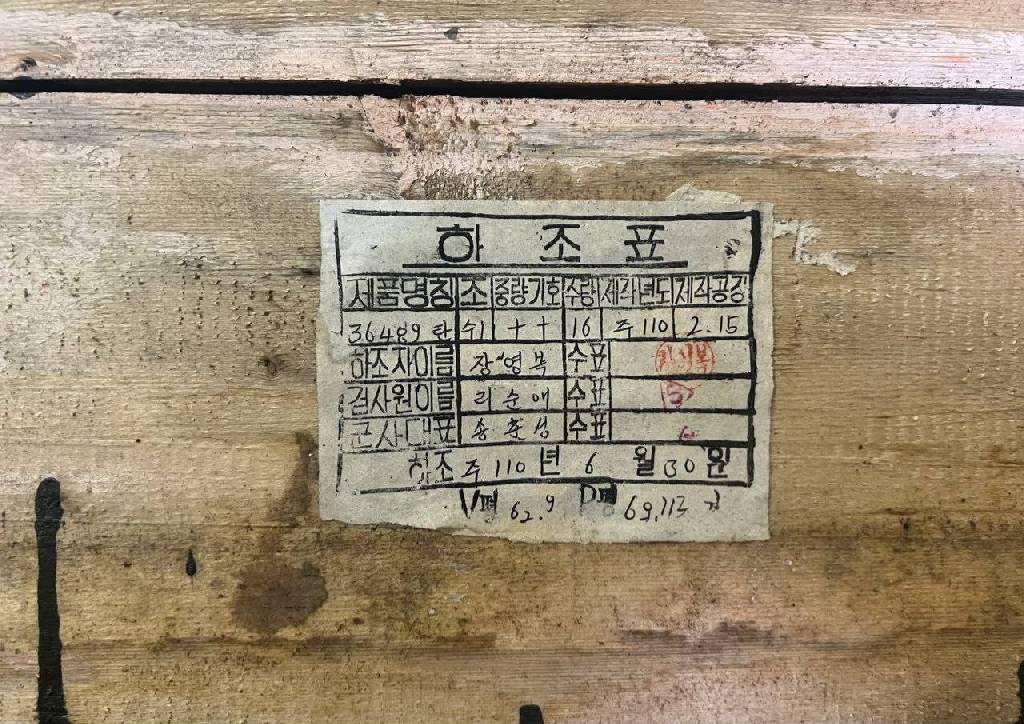 하조표
제품명칭 조 중량기호 수량 제작년도 제작공장
36489탄 41 ++ 16 주110 2.15
하조자이름 장영복 수표
검사원이름 리순애 수표
군사대표 송춘성 수표
하조 주110년 6월 30일
V평 62.9 P평 69,113